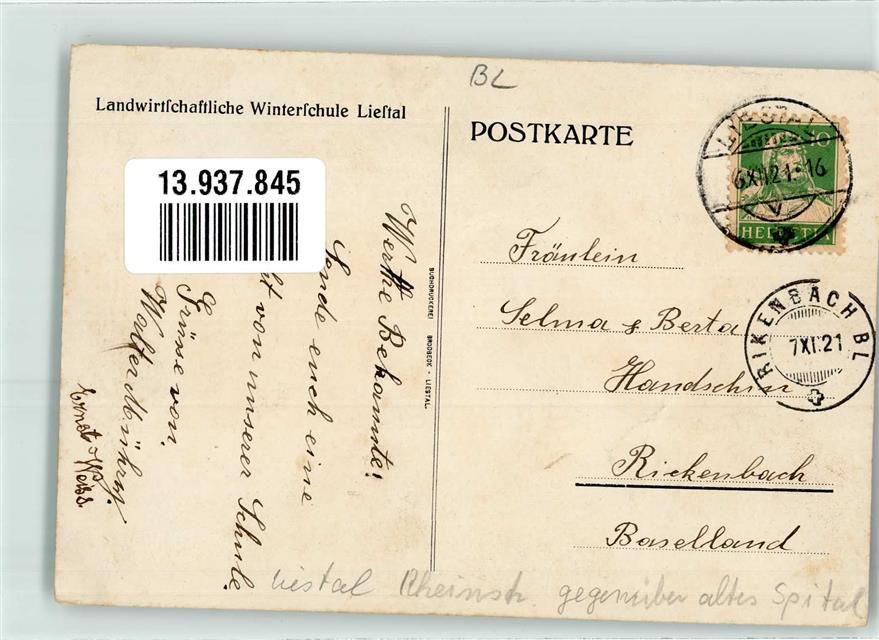 BL
Landwirtſchaftliche Winterſchule Lieſtal
POSTKARTE
13.937.845
LIESTAL
6XII21-16
V
10
HELVETIA
RIKENBACH BL
7XI.21
Fräulein
Selma & Berta
Handschin
Rickenbach
Baselland
BUCHDRUCKEREI BRODBECK - LIESTAL
Werthe Bekannte!
Sende euch eine
von unserer Schule.
Grüsse von
Walter
Ernst Weiss.
Liestal Rheinstr gegenüber altes Spital